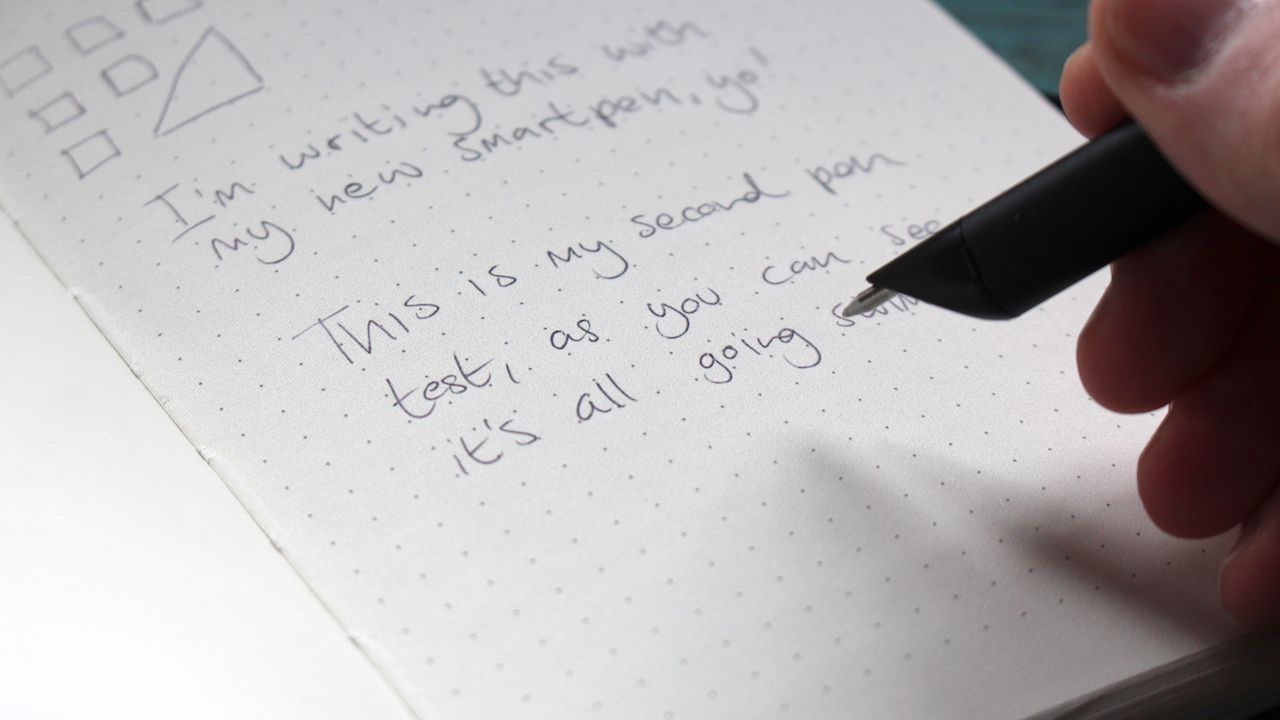 I'm writing this with
my new smartpen, yo!
This is my second pen
test, as you can see
it's all going